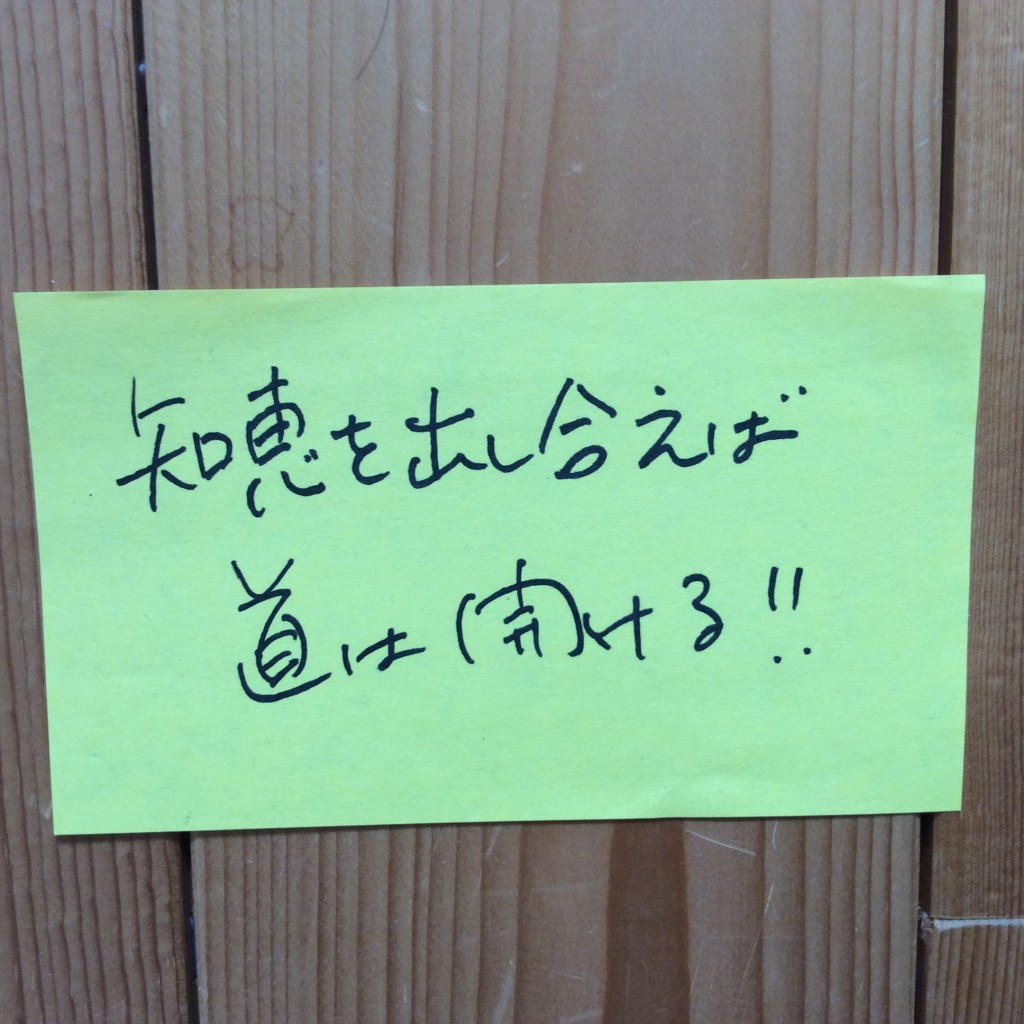 知恵を出し合えば
道は開ける!!